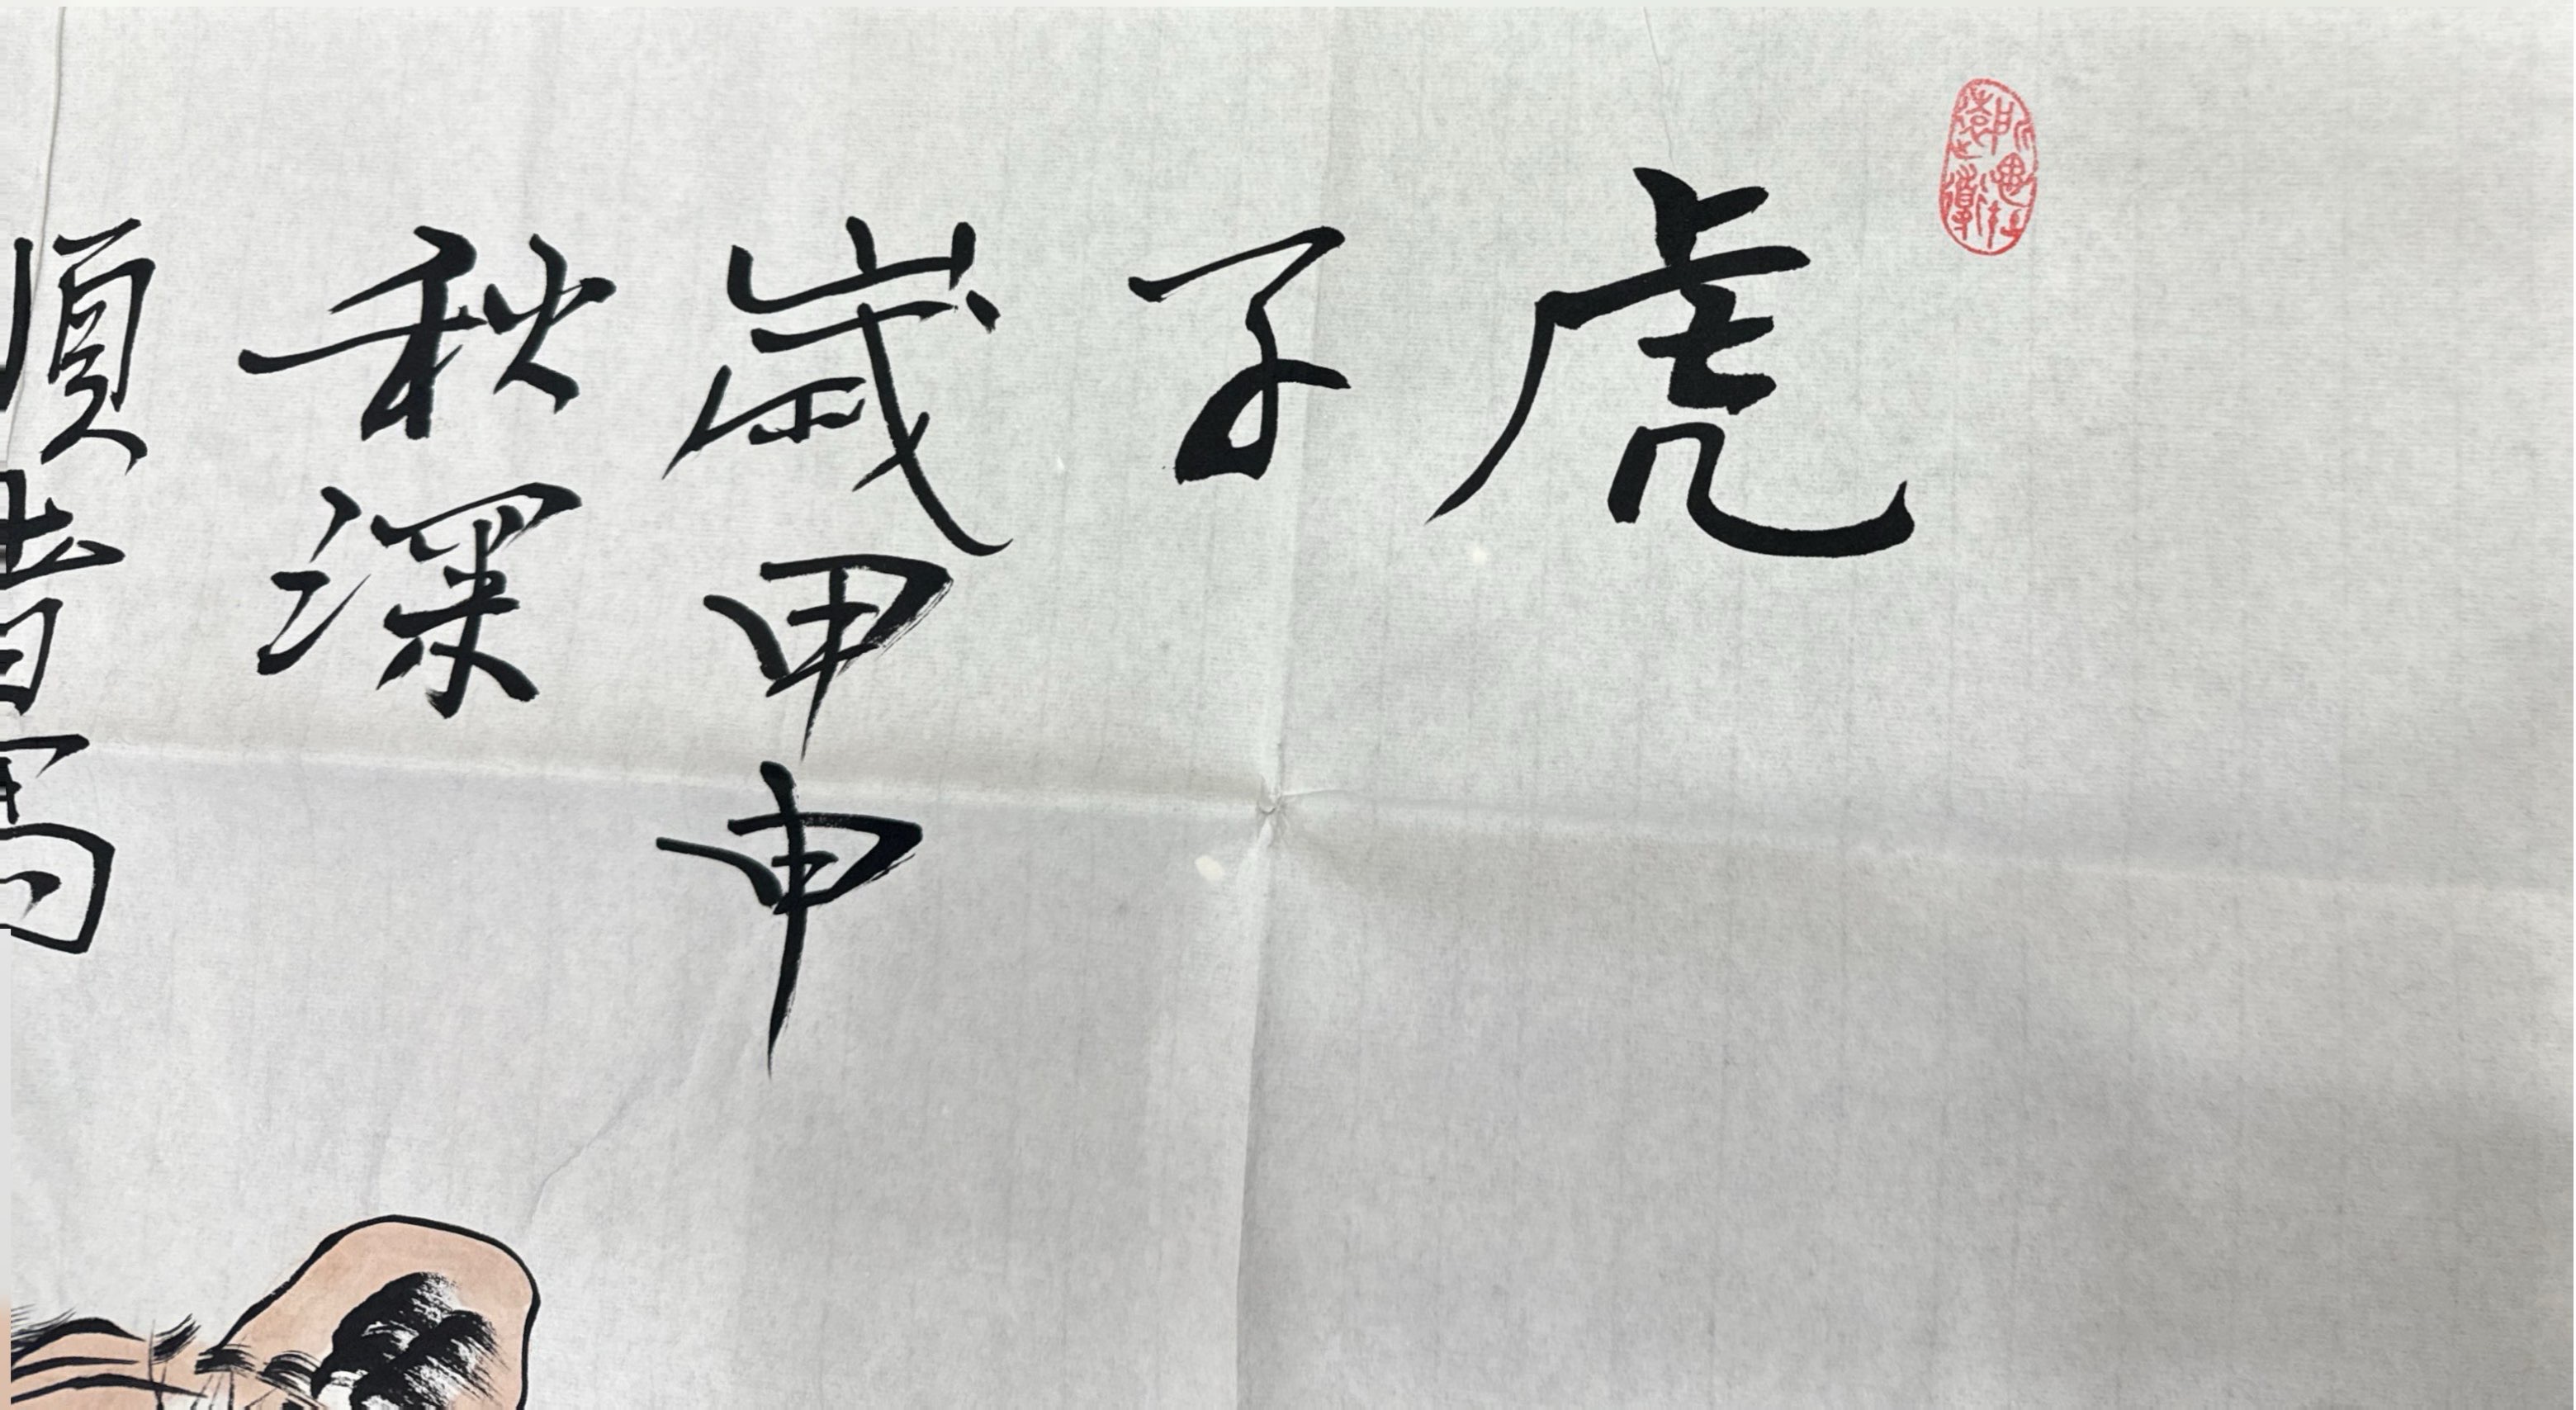 虎
子
歲甲申
秋深
順清寫